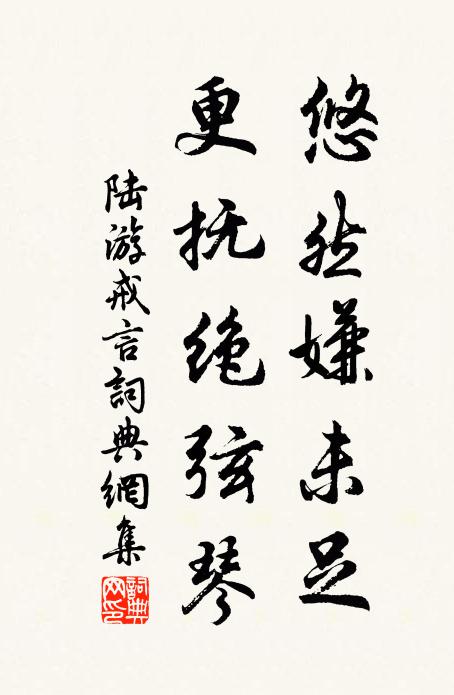 悠然嫌未足
更抚绝弦琴
陆游戒言詞典網集
詞典
网印